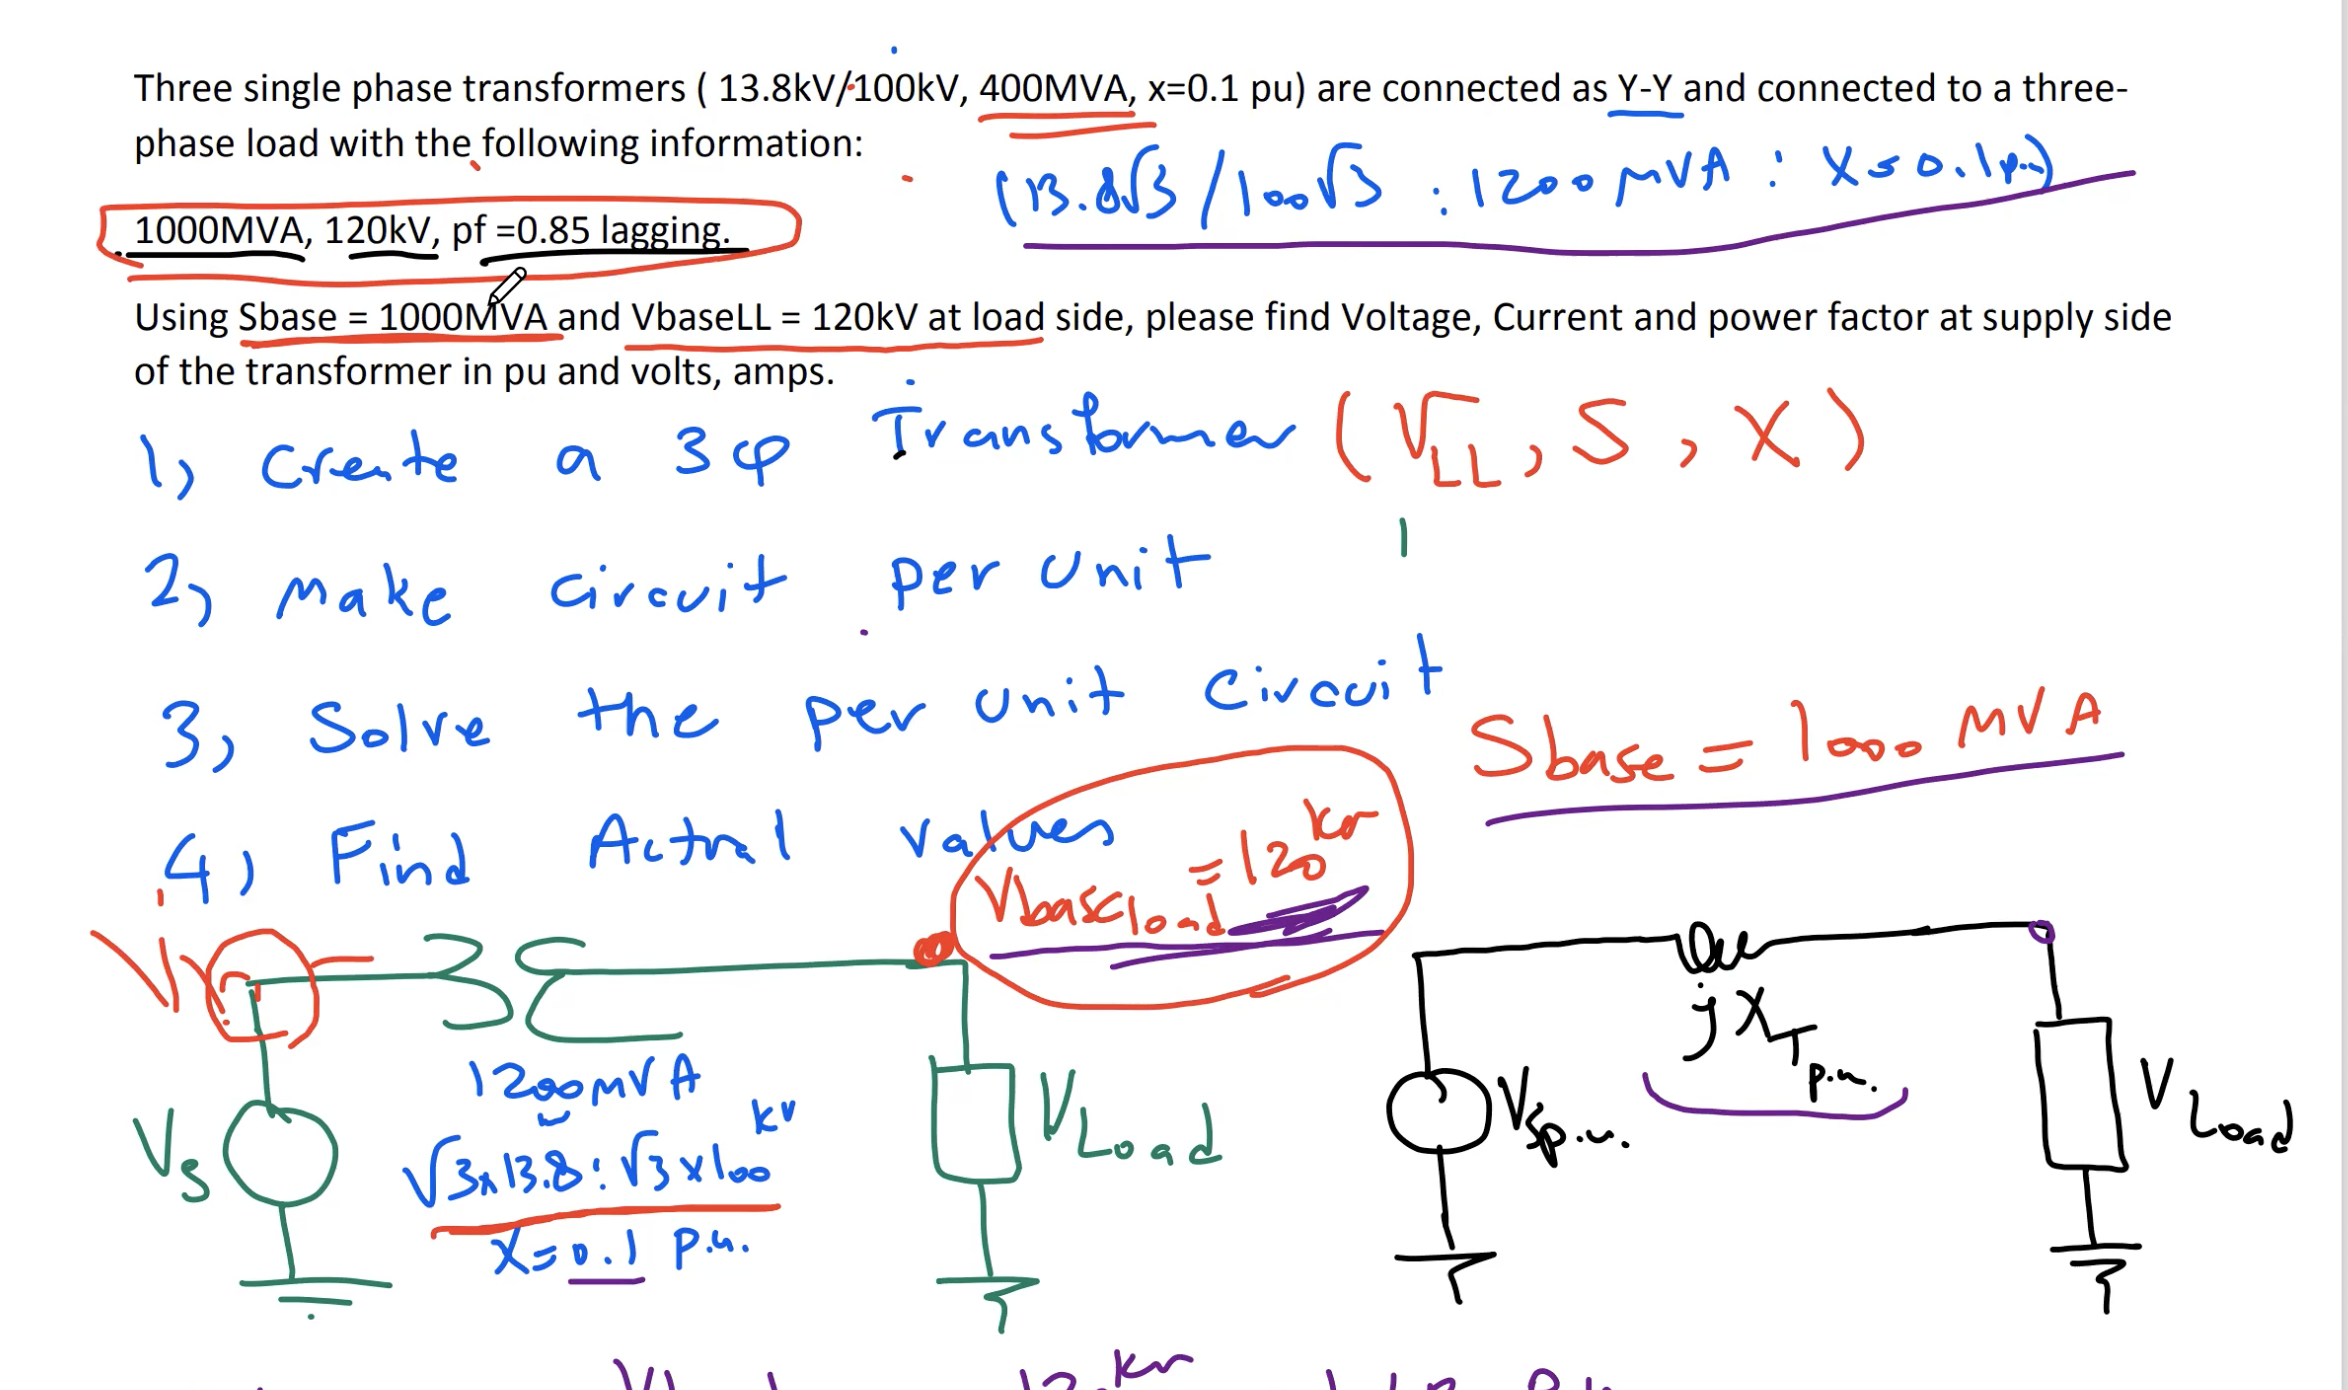 Three single phase transformers ( 13.8kV/100kV, 400MVA, x=0.1 pu) are connected as Y-Y and connected to a three-
phase load with the following information:
(13.8√3 / 100√3 : 1200 MVA : X=0.1 p.u)
1000MVA, 120kV, pf =0.85 lagging.
Using Sbase = 1000MVA and VbaseLL = 120kV at load side, please find Voltage, Current and power factor at supply side
of the transformer in pu and volts, amps.
1, Create a 3φ Transformer (VLL, S, X)
2, Make circuit per unit
3, Solve the per unit circuit
Sbase = 1000 MVA
4, Find Actual values
Vbase load = 120 kV
jXT p.u.
1200 MVA
√3x13.8 : √3 x100 kV
X=0.1 p.u.
Vs
VLoad
Vs p.u.
VLoad